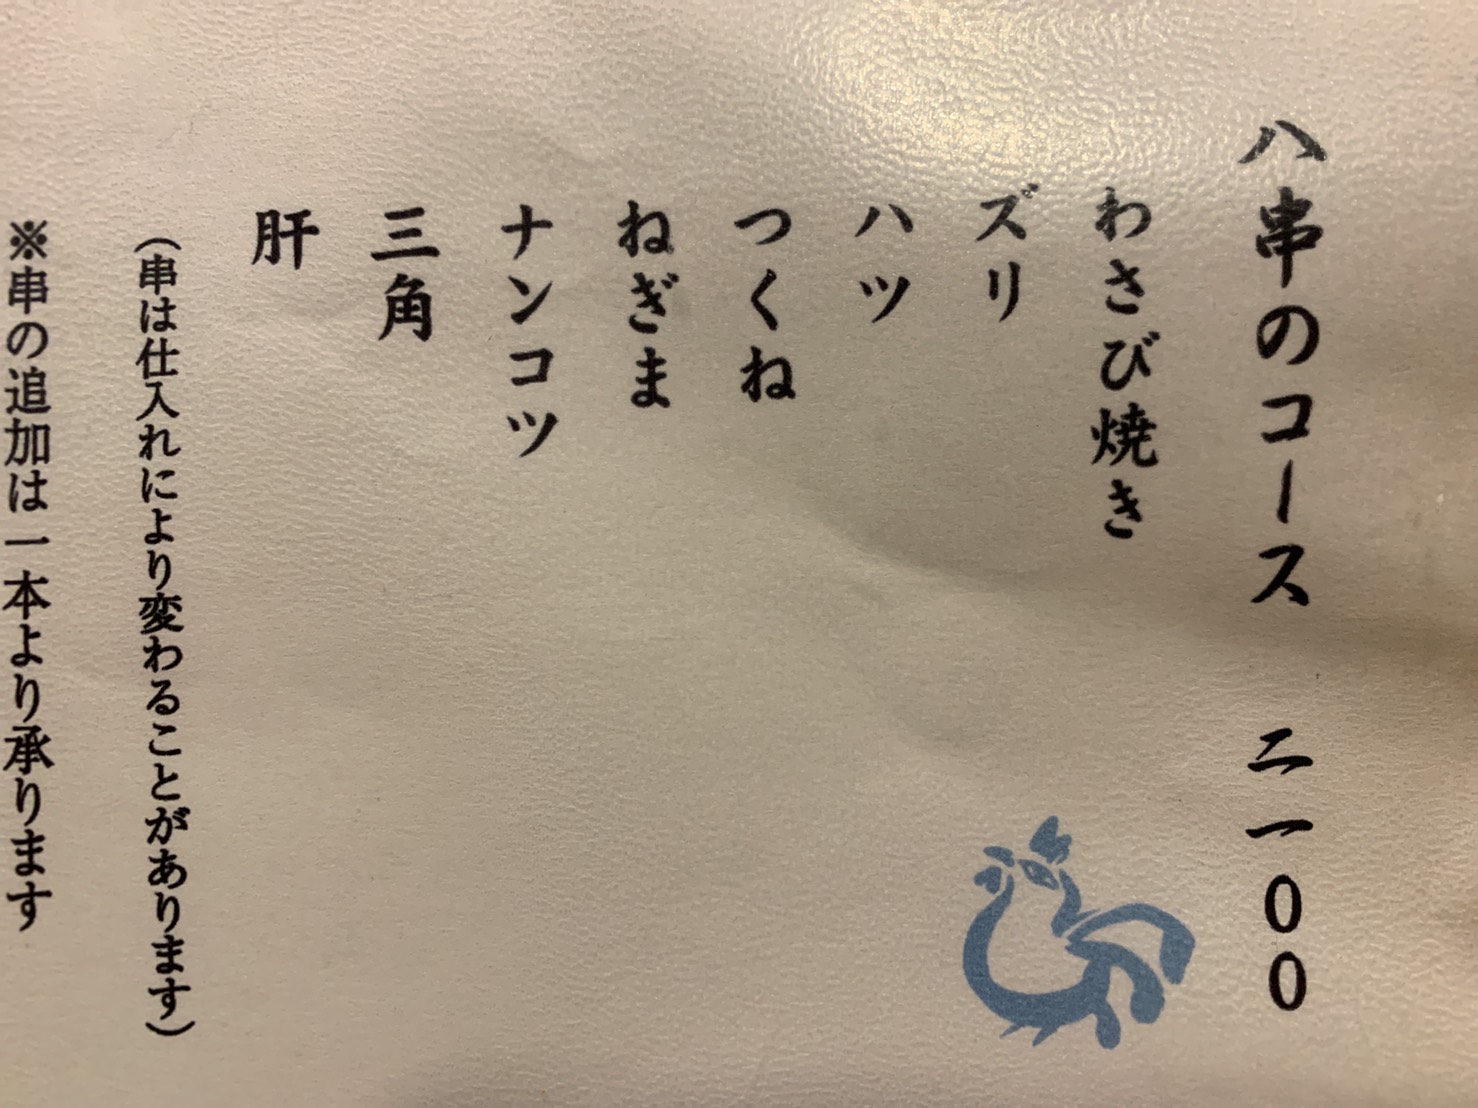 八串のコース 二一００
わさび焼き
ズリ
ハツ
つくね
ねぎま
ナンコツ
三角
肝
（串は仕入れにより変わることがあります）
※串の追加は一本より承ります